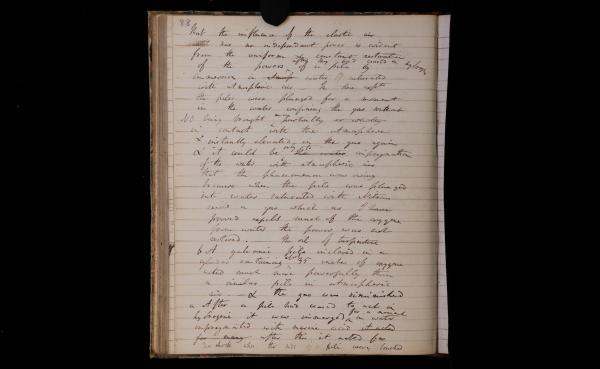 88
that the influence of the elastic air
has no independent power is evident
from the uniform & constant restoration
of the powers of a pile by
immersion in water saturated
with atmospheric air — In this expt
the piles were plunged for a moment
in the water confining the gas without
being brought partially
in contact with the atmosphere
& instantly elevated in the gas again
& it could be impregnation
of the water with atmospheric air
that the phaenomenon was owing
because when the pile was plunged
into water saturated with Nitrous
gas which as I have
proved expells most of the oxygene
from water the power was not
restored. The oil of turpentine
b A galvanic pile inclosed in a
containing 35 inches of oxygene
acted much more powerfully than
a similar pile in atmospheric
air — & the gas was diminished
a After a pile had ceased to act in
hydrogene it was immersed for a minute in water
impregnated with acid
after this it acted for
the pile were